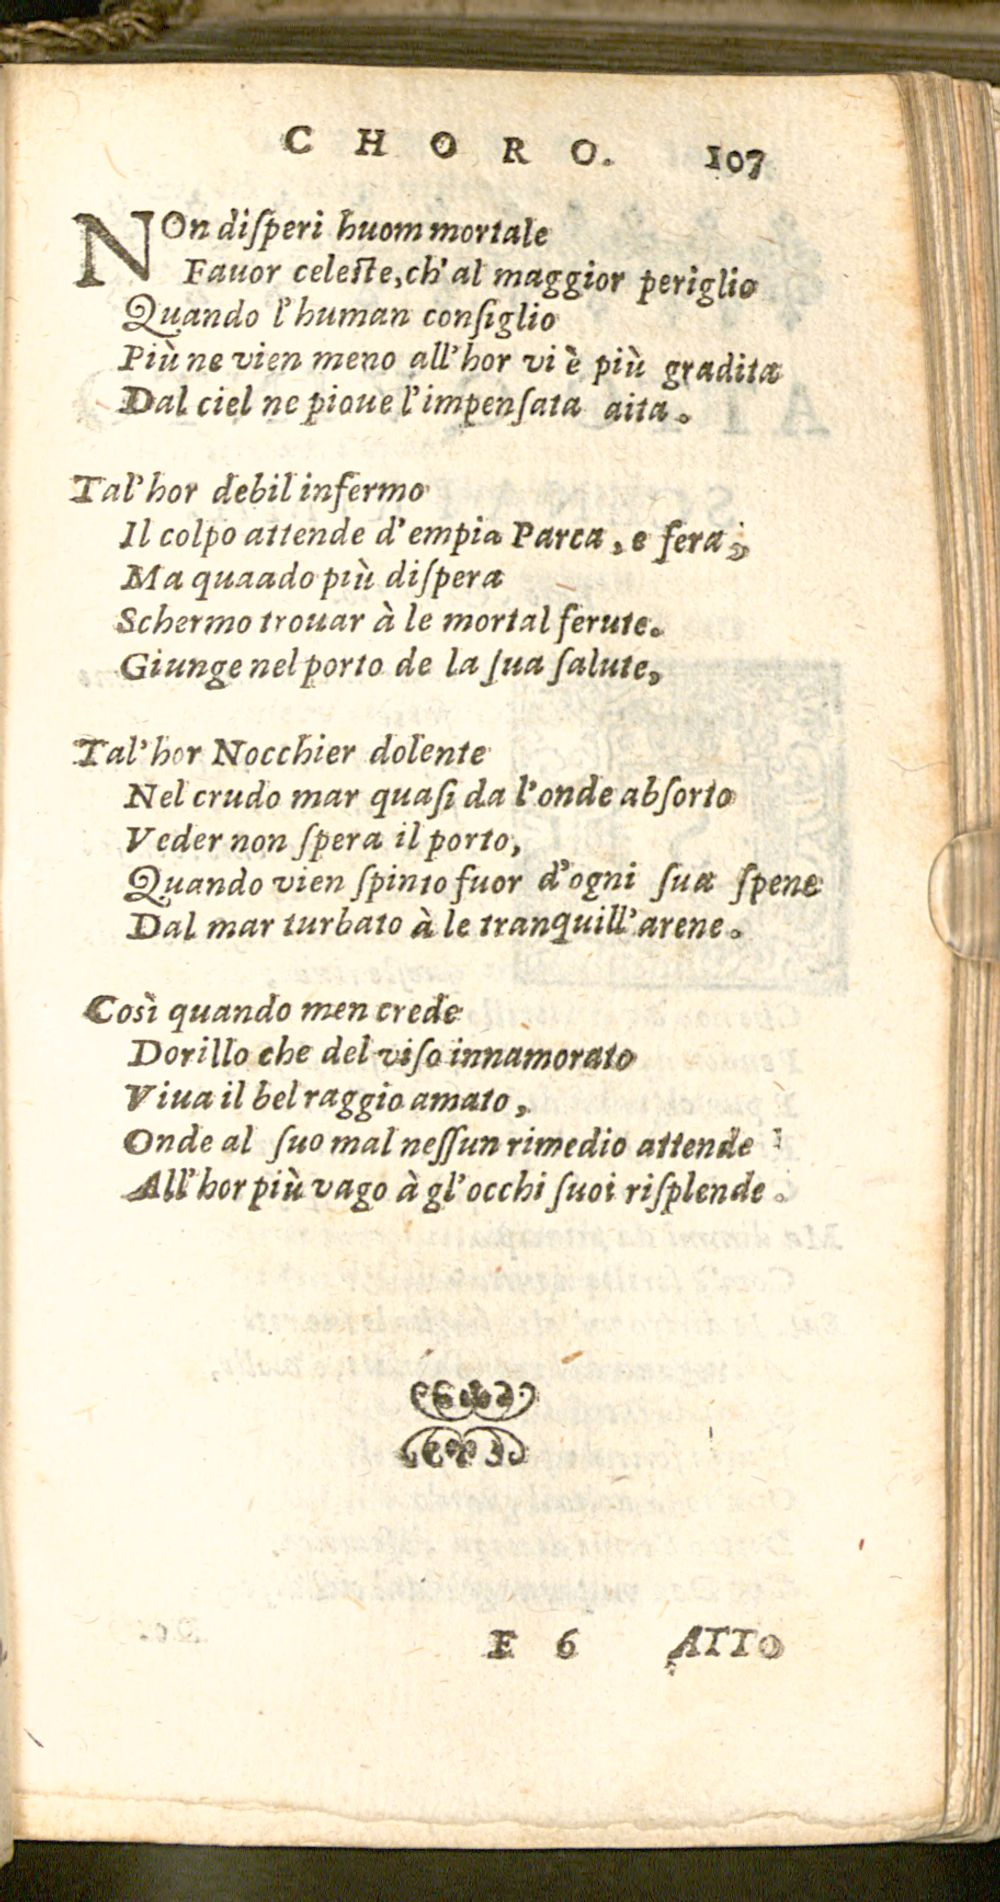 CHORO. 107
NOn diſperi huom mortale
Fauor celeſte, ch' al maggior periglio
Quando l'human conſiglio
Più ne vien meno all'hor vi è più gradita
Dal ciel ne pioue l'impenſata aita.
Tal'hor debil infermo
Il colpo attende d'empia Parca, e fera;
Ma quaado più diſpera
Schermo trouar à le mortal ferute.
Giunge nel porto de la ſua ſalute,
Tal'hor Nocchier dolente
Nel crudo mar quaſi da l'onde abſorto
Veder non ſpera il porto,
Quando vien ſpinto fuor d'ogni ſua ſpene
Dal mar turbato à le tranquill'arene.
Così quando men crede
Dorillo che del viſo innamorato
Viua il bel raggio amato,
Onde al ſuo mal neſſun rimedio attende
All'hor più vago à gl'occhi ſuoi riſplende.
E 6 ATTO